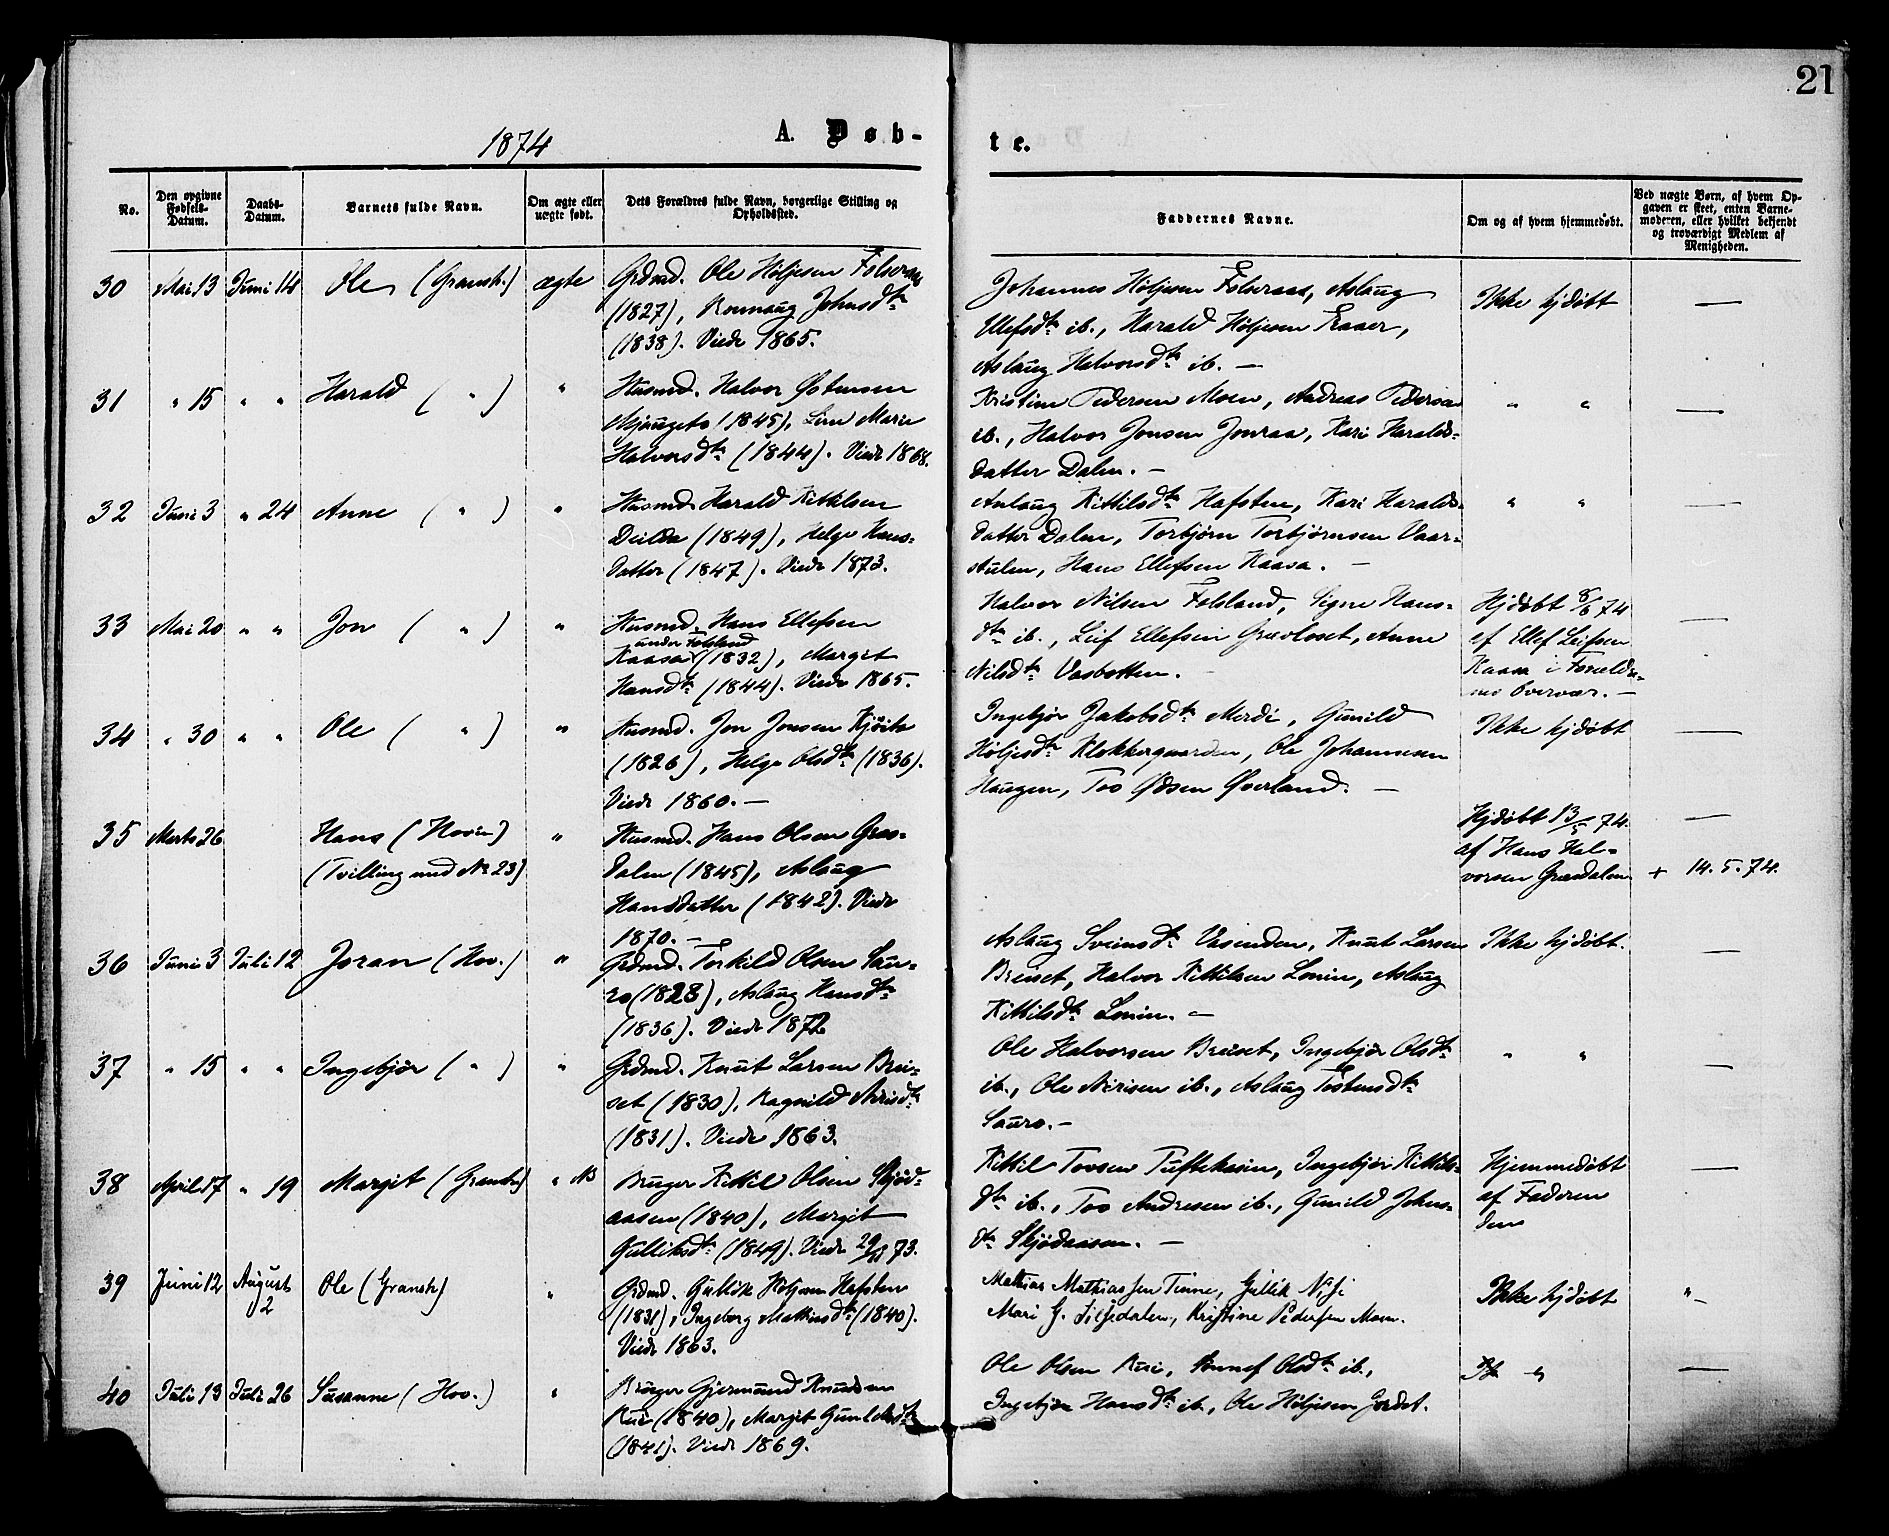 21
1874
A. Døb-
te.
No.
Den opgivne Fødsels-Datum.
Daabs-Datum.
Barnets fulde Navn.
Om ægte eller uægte født.
Dets Forældres fulde Navn, borgerlige Stilling og Opholdssted.
Faddernes Navne.
Om og af hvem hjemmedøbt.
Ved uægte Børn, af hvem Opgaven er skeet, enten Barnemoderen, eller hvilket bekjendt og troværdigt Medlem af Menigheden.
30 Mai 13 Juni 14 Ole (Gransh.) ægte Grdmd. Ole Høljesen Folseraas
(1827), Ronnaug Johnsdtr
(1838). Viede 1865.
Johannes Høljesen Folseraas, Aslaug
Ulefsdtr ib., Harald Høljesen Kaaer,
Aslaug Halvorsdtr ib. —
Ikke hjdøbt —
31 " 15 " " Harald ( " ) " Husmd. Halvor Østensen
(1845), Marie
Halvorsdtr (1844). Viede 1868.
Kristine Pedersen Moen, Andreas Pedersen
ib., Halvor Jonsen Jonraa, Kari Haralds-
datter Dalen. —
" " —
32 Juni 3 " 24 Anne ( " ) " Husmd. Harald Kittilsen
Deilda (1849), Helge Hans-
datter (1847). Viede 1873.
Aslaug Kittilsdtr Hafsten, Kari Haralds-
datter Dalen, Torbjørn Torbjørnsen Vaar-
stulen, Hans Ellefsen Kaasa. —
" " —
33 Mai 20 " " Jon ( " ) " Husmd. Hans Ellefsen
under Folsland
Kaasa (1832), Margit
Hansdtr (1844). Viede 1865.
Halvor Nilsen Folsland, Signe Hans-
dtr ib., Leif Ellefsen Grævloset, Anne
Nilsdtr Vasbotten. -
Hjdøbt 8/6 74
af Ellef Leifsen
Kaasa i Foreldre-
nes Overvær. —
—
34 " 30 " " Ole ( " ) " Husmd. Jon Jonsen Kjøits
(1826), Helge Olsdtr (1836).
Viede 1860. —
Ingebjør Jakobsdtr Merdi, Gunild
Høljesdtr Klokkergaarden, Ole Johannesen
Haugen, Tov Ødsen Øverland. —
Ikke hjdøbt —
35 Marts 26 Hans (Hovin)
(Tvilling med No 23)
" Husmd. Hans Olsen Græs-
dalen (1845), Aslaug
Hansdatter (1842). Viede
1870. —
Hjdøbt 13/5 74.
af Hans Hal-
vorsen Græsdalen
—
+ 14. 5. 74.
36 Juni 3 Juli 12 Joran (Hov.) " Grdmd. Torkild Olsen Sau-
ro (1828), Aslaug Hansdtr
(1836). Viede 1872
Aslaug Sveinsdtr Vasenden, Knut Larsen
Breiset, Halvor Kittilsen Lonin, Aslaug
Kittilsdtr Lonin. —
Ikke hjdøbt. —
37 " 15 " " Ingebjør ( " ) " Grdmd. Knut Larsen Brei-
set (1830), Ragnild Nirisdtr
(1831). Viede 1863.
Ole Halvorsen Breiset, Ingebjør Olsdtr
ib., Ole Nirisen ib., Aslaug Tostensdtr
Sauro. —
" " —
38 April 17 " 19 Margit (Gransh.) " NB Bruger Kittil Olsen Skjød-
aasen (1840), Margit
Gulliksdtr (1849). Viede 73.
Kittil Tovsen Tuftekasin, Ingebjør Kittils-
dtr ib., Tov Andresen ib., Gunild Johns-
dtr Skjødaasen. —
Hjemmedøbt
af Faderen
—
39 Juni 12 August 2 Ole (Gransh) " Grdmd. Gullik Høljesen Hafsten
(1831), Ingeborg Mathisdtr (1840).
Viede 1863.
Mathias Mathiassen Tinne, Gullik
Mari G. Liffedalen, Kristine Pedersen Moen.
Ikke hjdøbt " —
40 Juli 13 Juli 26 Susanne (Hov.) " Bruger Gjermund Knudsen
Rui (1840), Margit
(1841). Viede 1869.
Ole Olsen Rui, Olsdtr ib.,
Ingebjør Hansdtr ib., Ole Høljesen Jordet.
" —